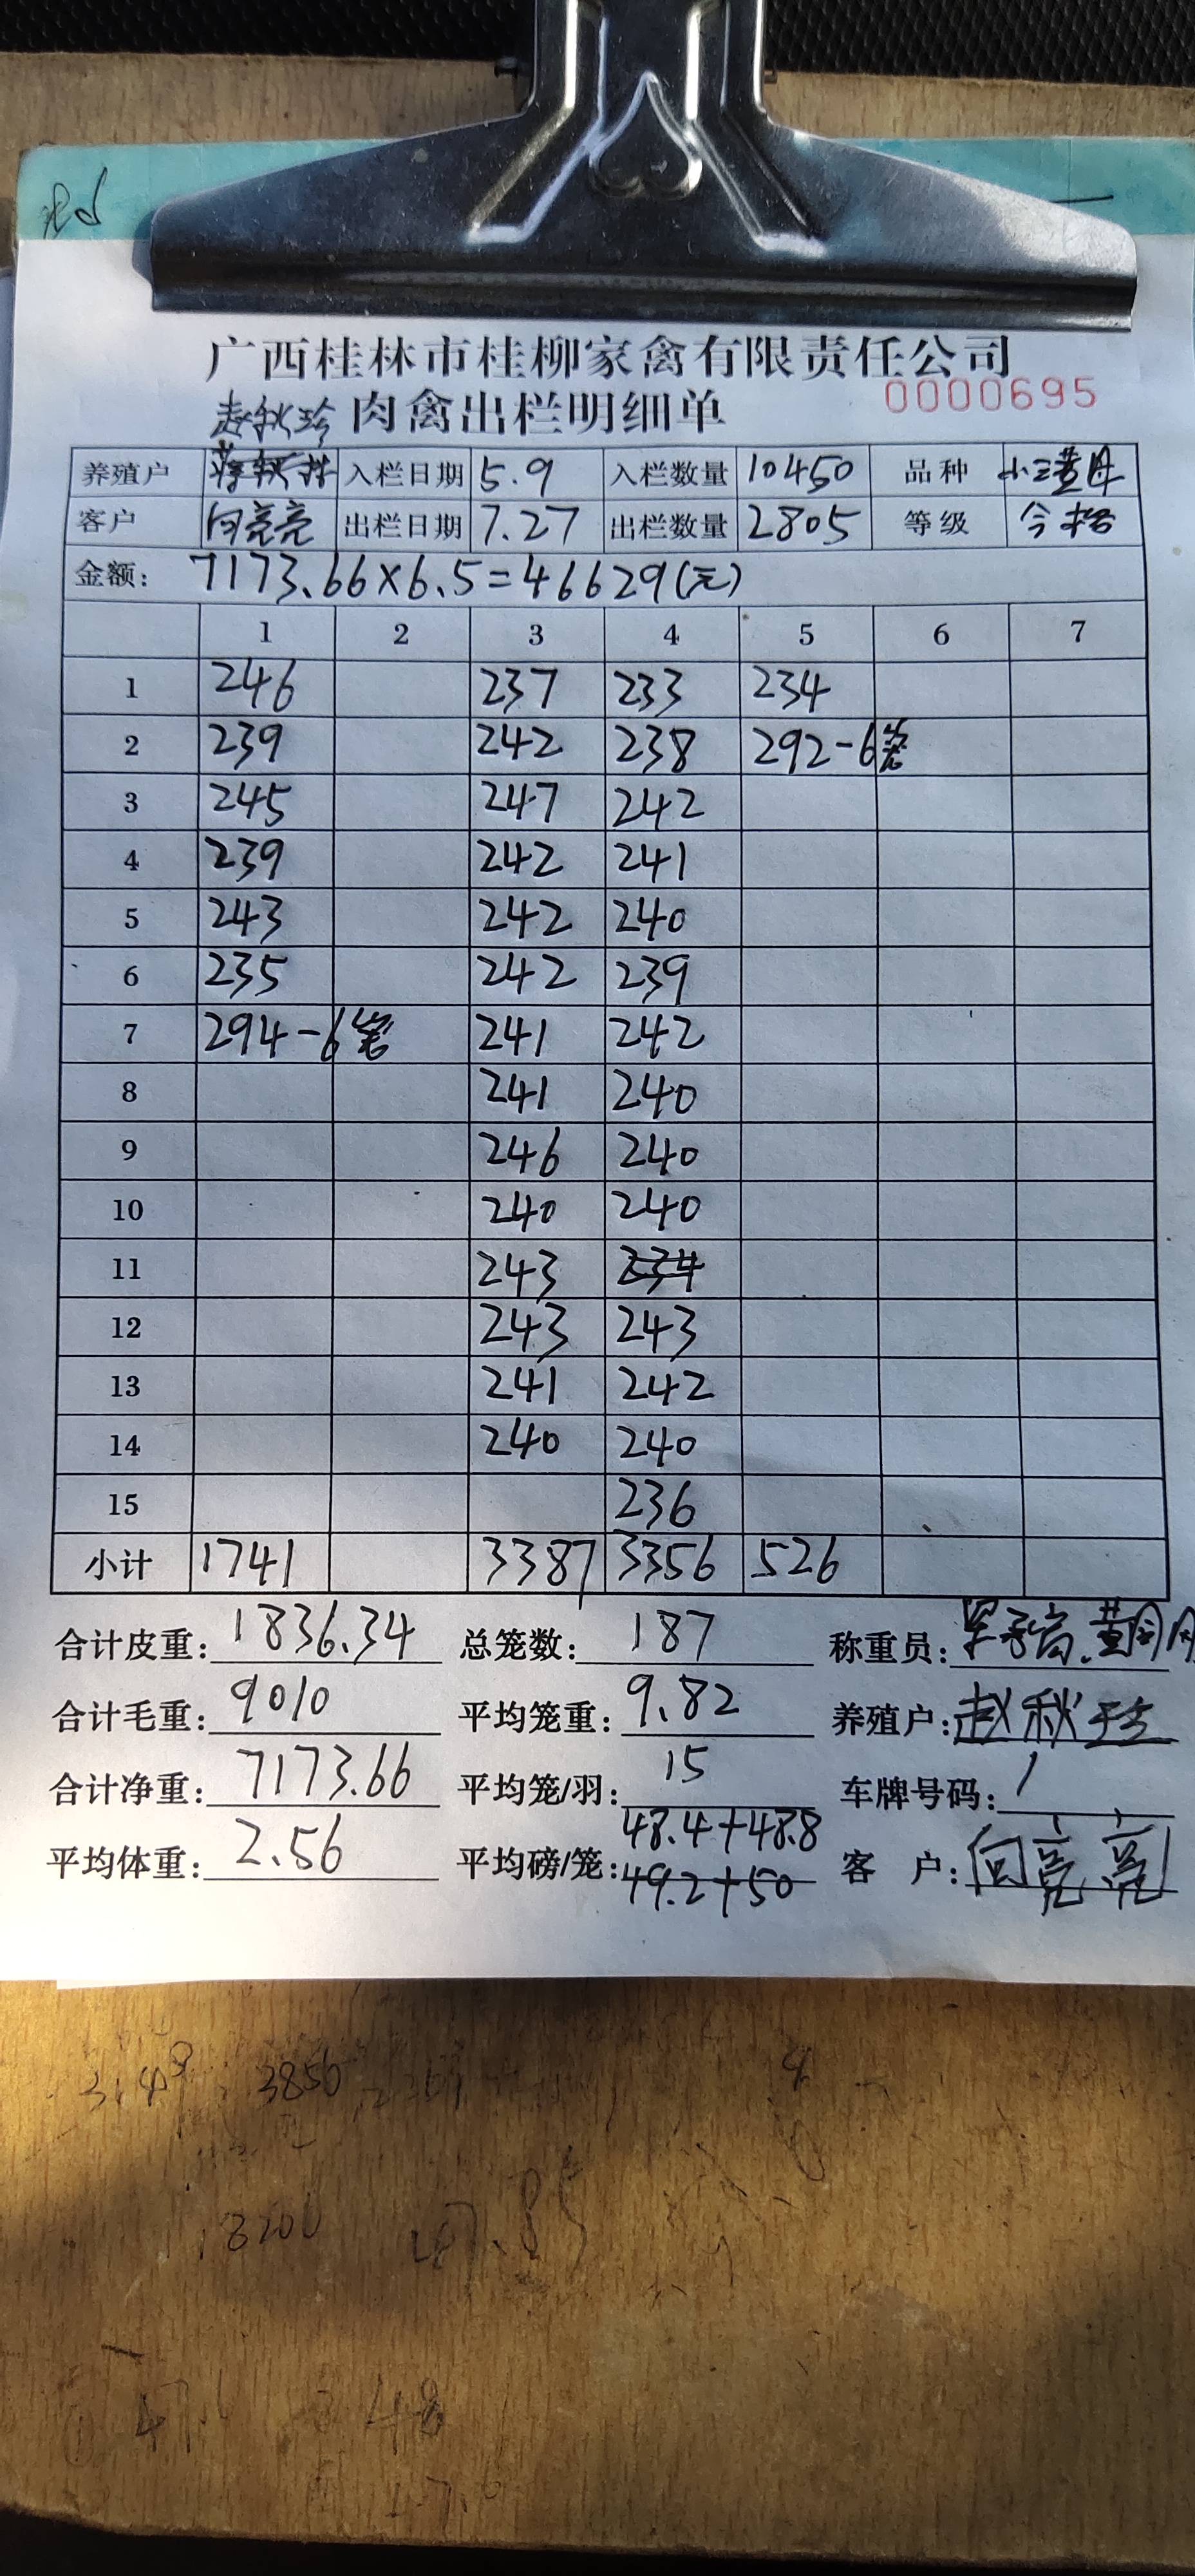 广西桂林市桂柳家禽有限责任公司
0000695
赵秋珍 肉禽出栏明细单
养殖户 入栏日期 5.9 入栏数量 10450 品种 小三黄母
客户 向亮亮 出栏日期 7.27 出栏数量 2805 等级 合格
金额: 7173.66×6.5=46629(元)
1 2 3 4 5 6 7
1 246 237 233 234
2 239 242 238 292-6笼
3 245 247 242
4 239 242 241
5 243 242 240
6 235 242 239
7 294-6笼 241 242
8 241 240
9 246 240
10 240 240
11 243 234
12 243 243
13 241 242
14 240 240
15 236
小计 1741 3387 3356 526
合计皮重: 1836.34 总笼数: 187 称重员:
合计毛重: 9010 平均笼重: 9.82 养殖户: 赵秋珍
合计净重: 7173.66 平均笼/羽: 15 车牌号码: /
平均体重: 2.56 平均磅/笼: 48.4+48.8 客 户: 向亮亮
49.2+50